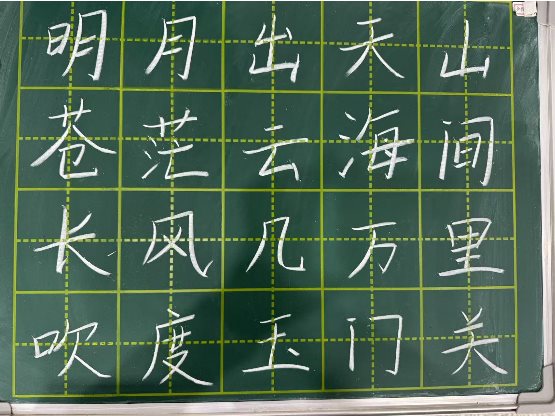 明月出天山
苍茫云海间
长风几万里
吹度玉门关